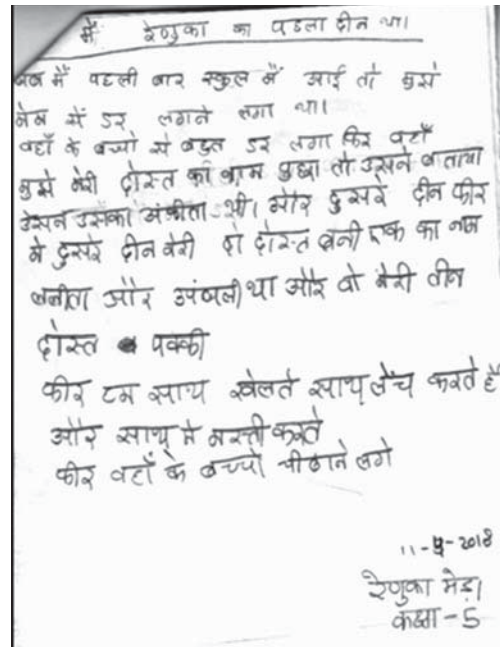 में रेणुका का पहला दीन था।
जब मैं पहली बार स्कुल में आई तो मुझे
में डर लगने लगा था।
वहाँ के बच्चो से बहुत डर लगा फिर वहाँ
मुझे मेरी दोस्त का नाम पुछा तो उसने बाताया
उसने उसका अंकीता थी। और दुसरे दीन फीर
में दुसरे दीन मेरी दो दोस्त बनी एक का नाम
बनीता और था और वो मेरी तीन
दोस्त पक्की
फीर हम साथ खेलते साथ लेंच करते हैं
और साथ में मस्ती करते
फीर वहाँ के बच्चो चीढाने लगे
11-5-2018
रेणुका मेड़ा
कक्षा-5